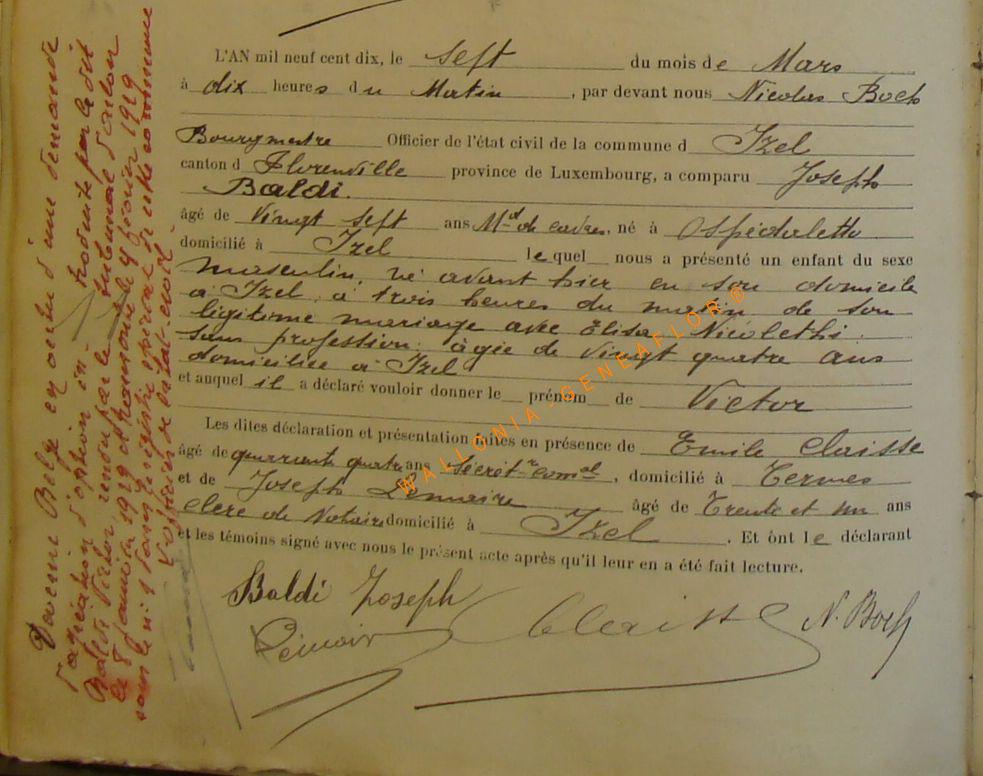 L'AN mil neuf cent dix, le sept du mois de Mars
à dix heures du Matin, par devant nous Nicolas Boch
Bourgmestre Officier de l'état civil de la commune d Izel
canton d Florenville province de Luxembourg, a comparu Joseph
Baldi.
âgé de Vingt sept ans Md de cadres, né à Ospedaletto
domicilié à Izel lequel nous a présenté un enfant du sexe
masculin, né avant hier en son domicile
à Izel, à trois heures du matin de son
légitime mariage avec Elisa Nicoletti
sans profession, âgée de vingt quatre ans
domiciliée à Izel
et auquel il a déclaré vouloir donner le prénom de Victor
Les dites déclaration et présentation faites en présence de Emile Claisse
âgé de quarante quatre ans Secrét.re comal, domicilié à Termes
et de Joseph Lemaire âgé de Trente et un ans
clerc de Notaire domicilié à Izel. Et ont le déclarant
et les témoins signé avec nous le présent acte après qu'il leur en a été fait lecture.
Baldi Joseph
Claisse
N. Boch
Devenu Belge en vertu d'une demande
d'option
Baldi Victor, tribunal d'Arlon
le 8 janvier 1929 février 1929
sous le n° 1 registre spécial de cette commune
L'officier de l'état-civil
WALLONIA - GENEAFLOR ®